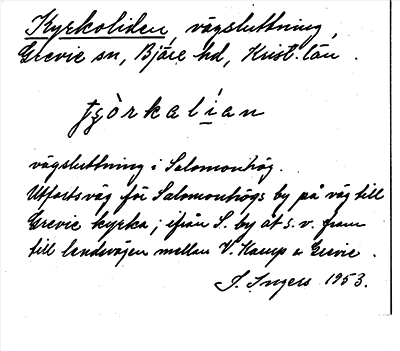 Kyrkoliden, vägsluttning,
Grevie sn, Bjäre hd, Krist. län.
tʂòrkalían
vägsluttning i Salomonhög.
Utfartsväg för Salomonhögs by på väg till
Grevie kyrka; ifrån S. by åt s.v. fram
till landsvägen mellan V. Karup o Grevie.
I. Ingers 1953.